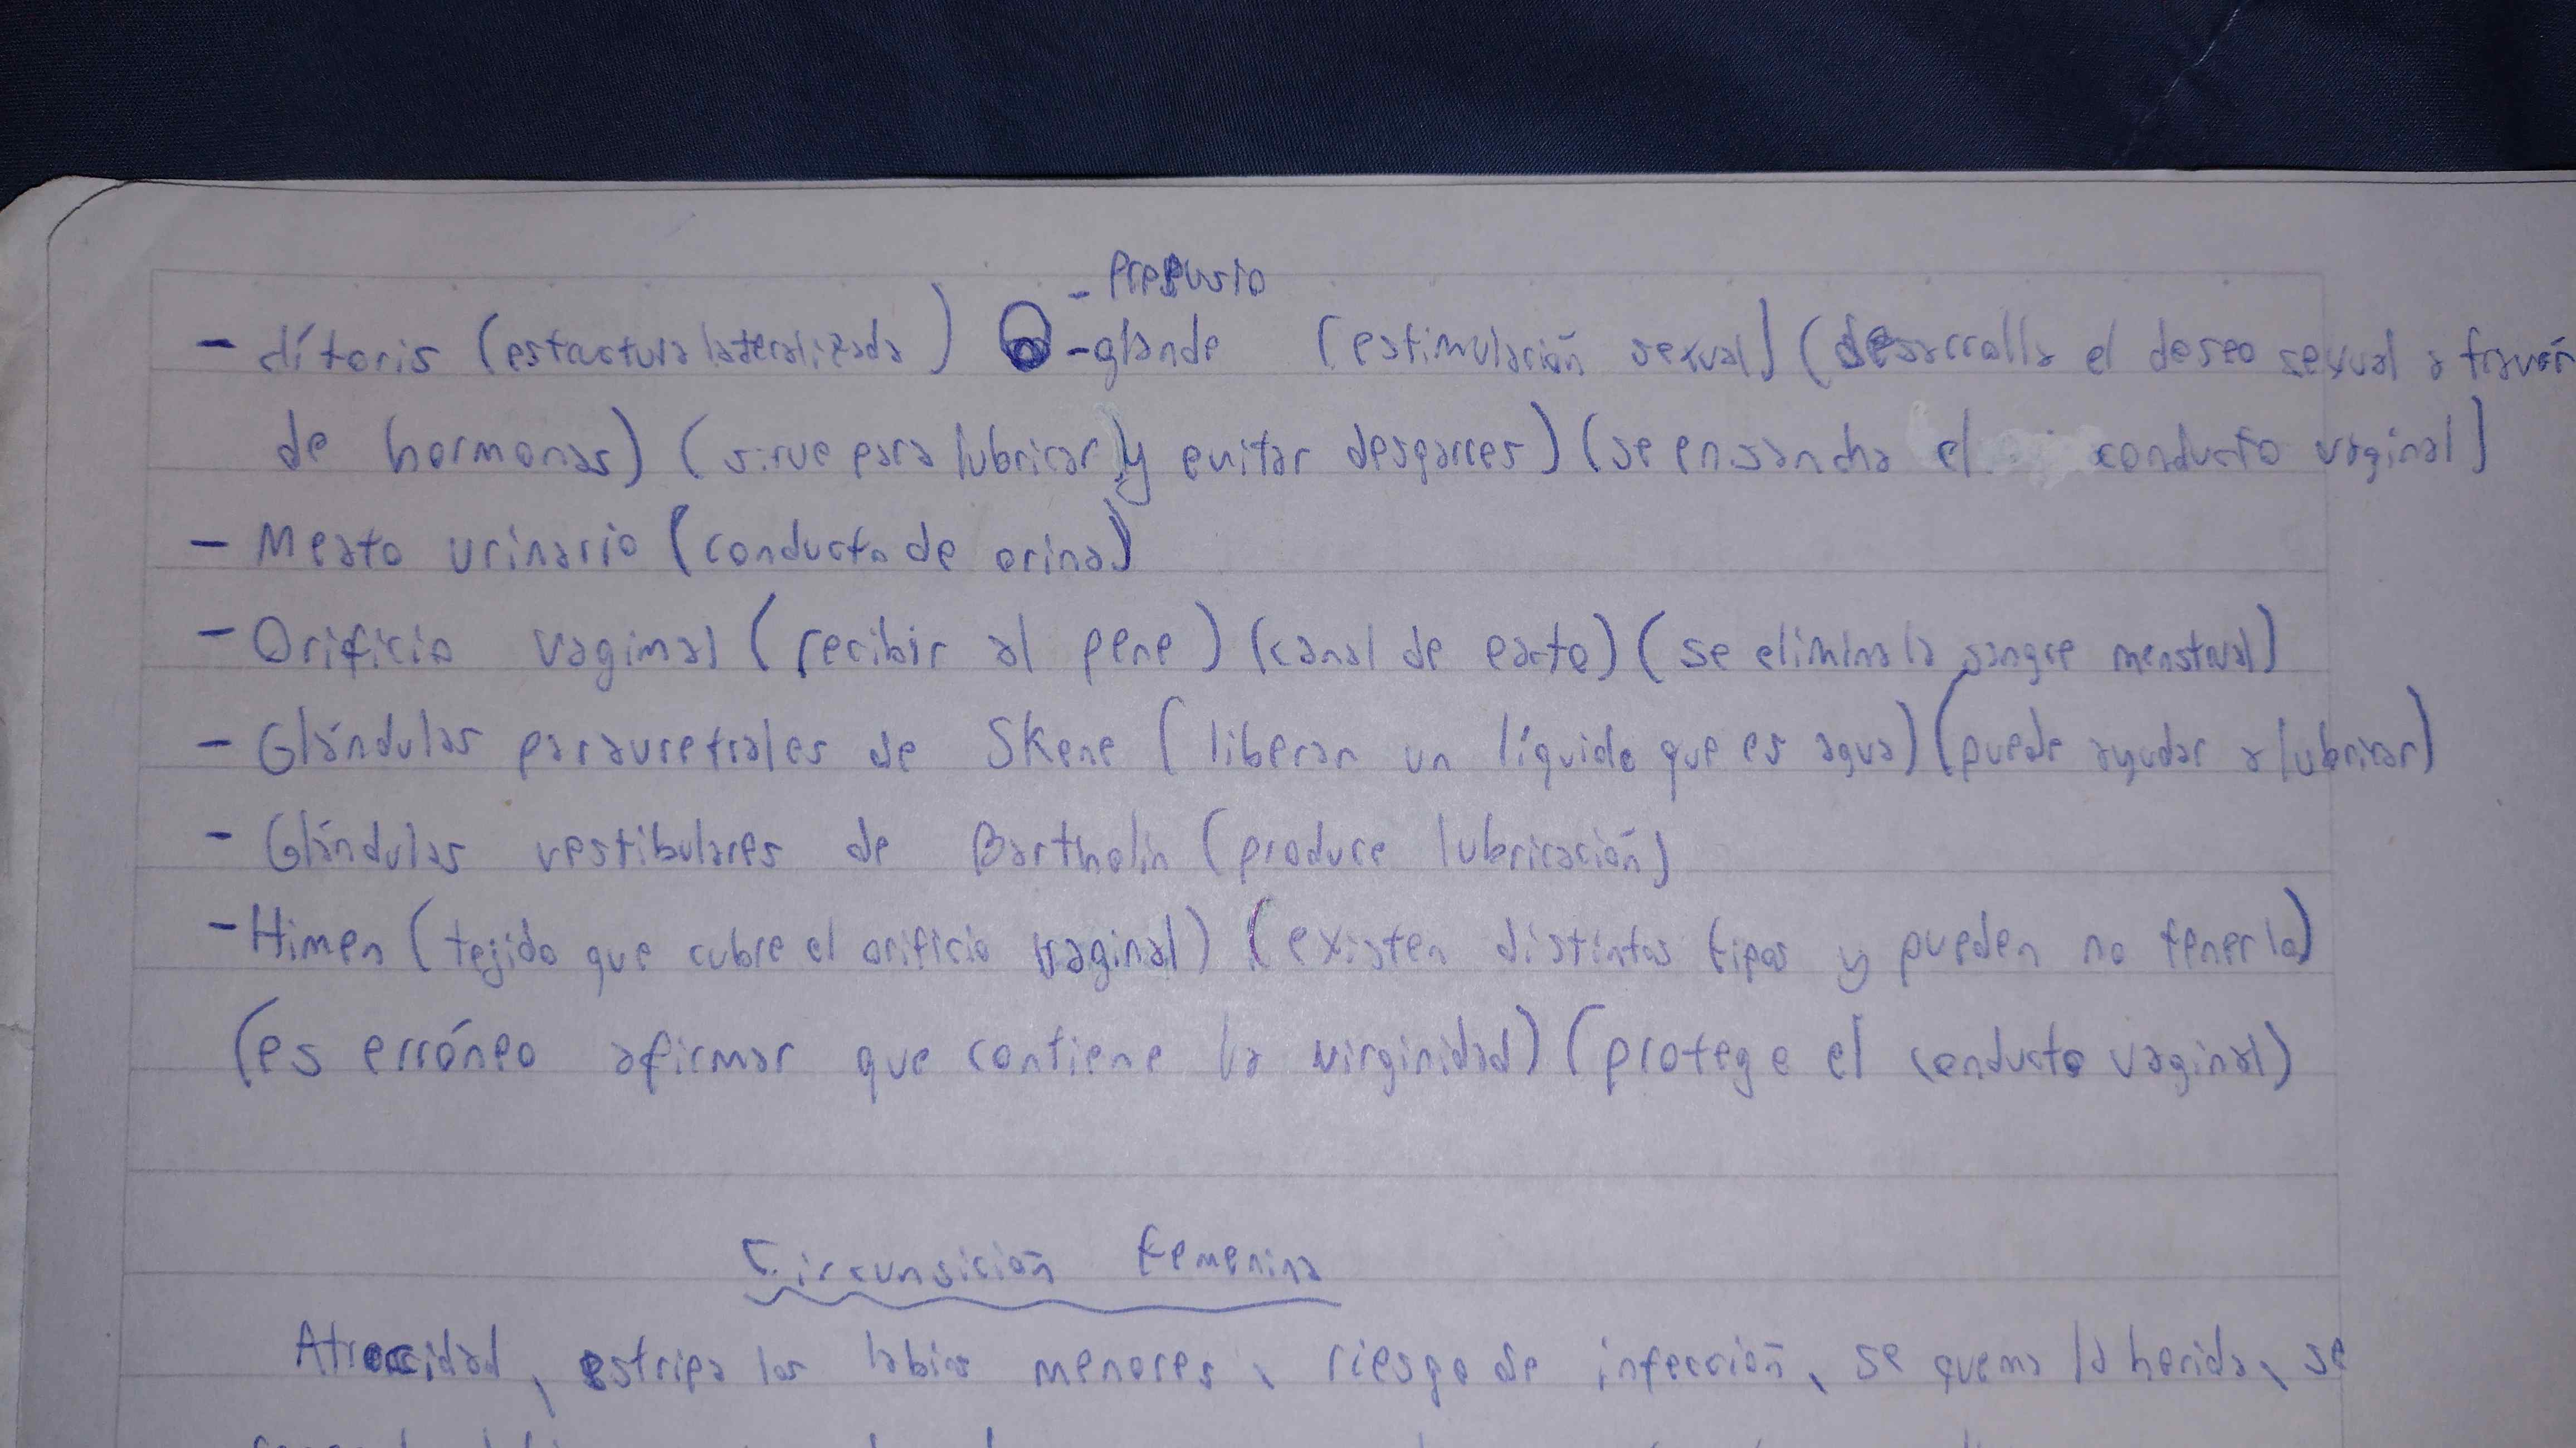 - Prepusio
- clítoris (estructura lateralizada) -glande (estimulación sexual) (desarrolla el deseo sexual a través
de hormonas) (sirve para lubricar) y evitar desgarres) (se ensancha el conducto vaginal)
- Meato urinario (conducto de orina)
- Orificio vaginal (recibir al pene) (canal de parto) (se elimina la sangre menstrual)
- Glándulas parauretrales de Skene (liberan un líquido que es agua) (puede ayudar a lubricar)
- Glándulas vestibulares de Bartholin (produce lubricación)
- Himen (tejido que cubre el orificio vaginal) (existen distintos tipos y pueden no tenerlo)
(es erróneo afirmar que contiene la virginidad) (protege el conducto vaginal)
Circunsición femenina
Atrocidad, estripa los labios menores, riesgo de infección, se quema la herida, se